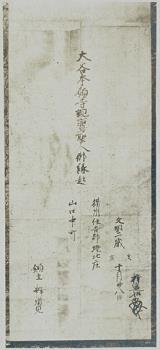 大谷本願寺親鸞聖人御縁起
文明二歳
十月廿八日
摂州住吉郡堺北庄
山口中町
願主 釈